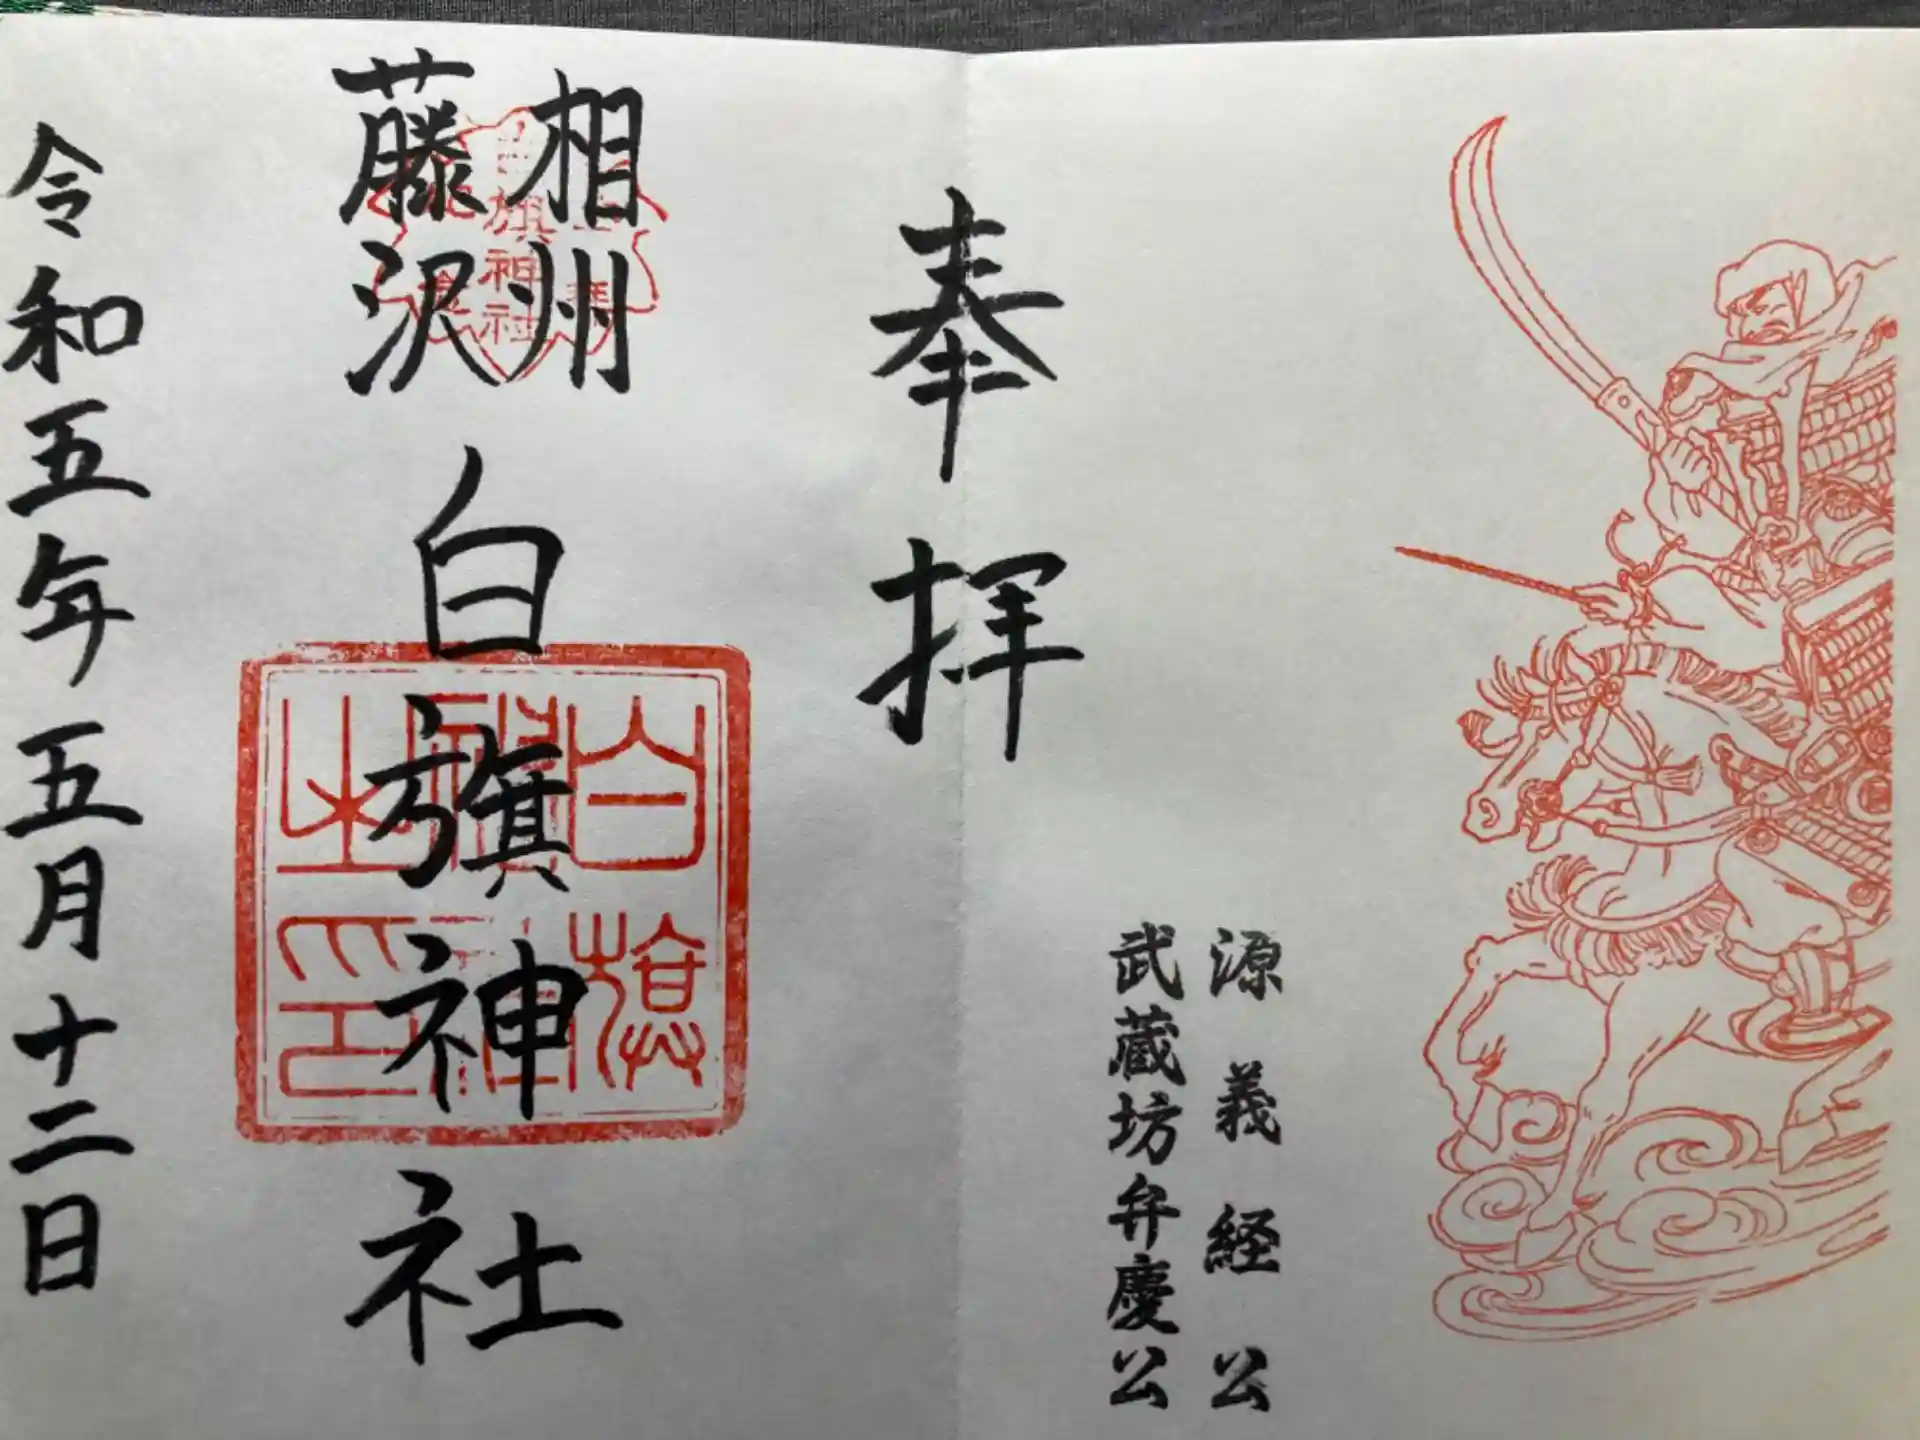 奉拝
源義経公
武蔵坊弁慶公
相州
藤沢
白旗神社
白旗神社之印
令和五年五月十二日